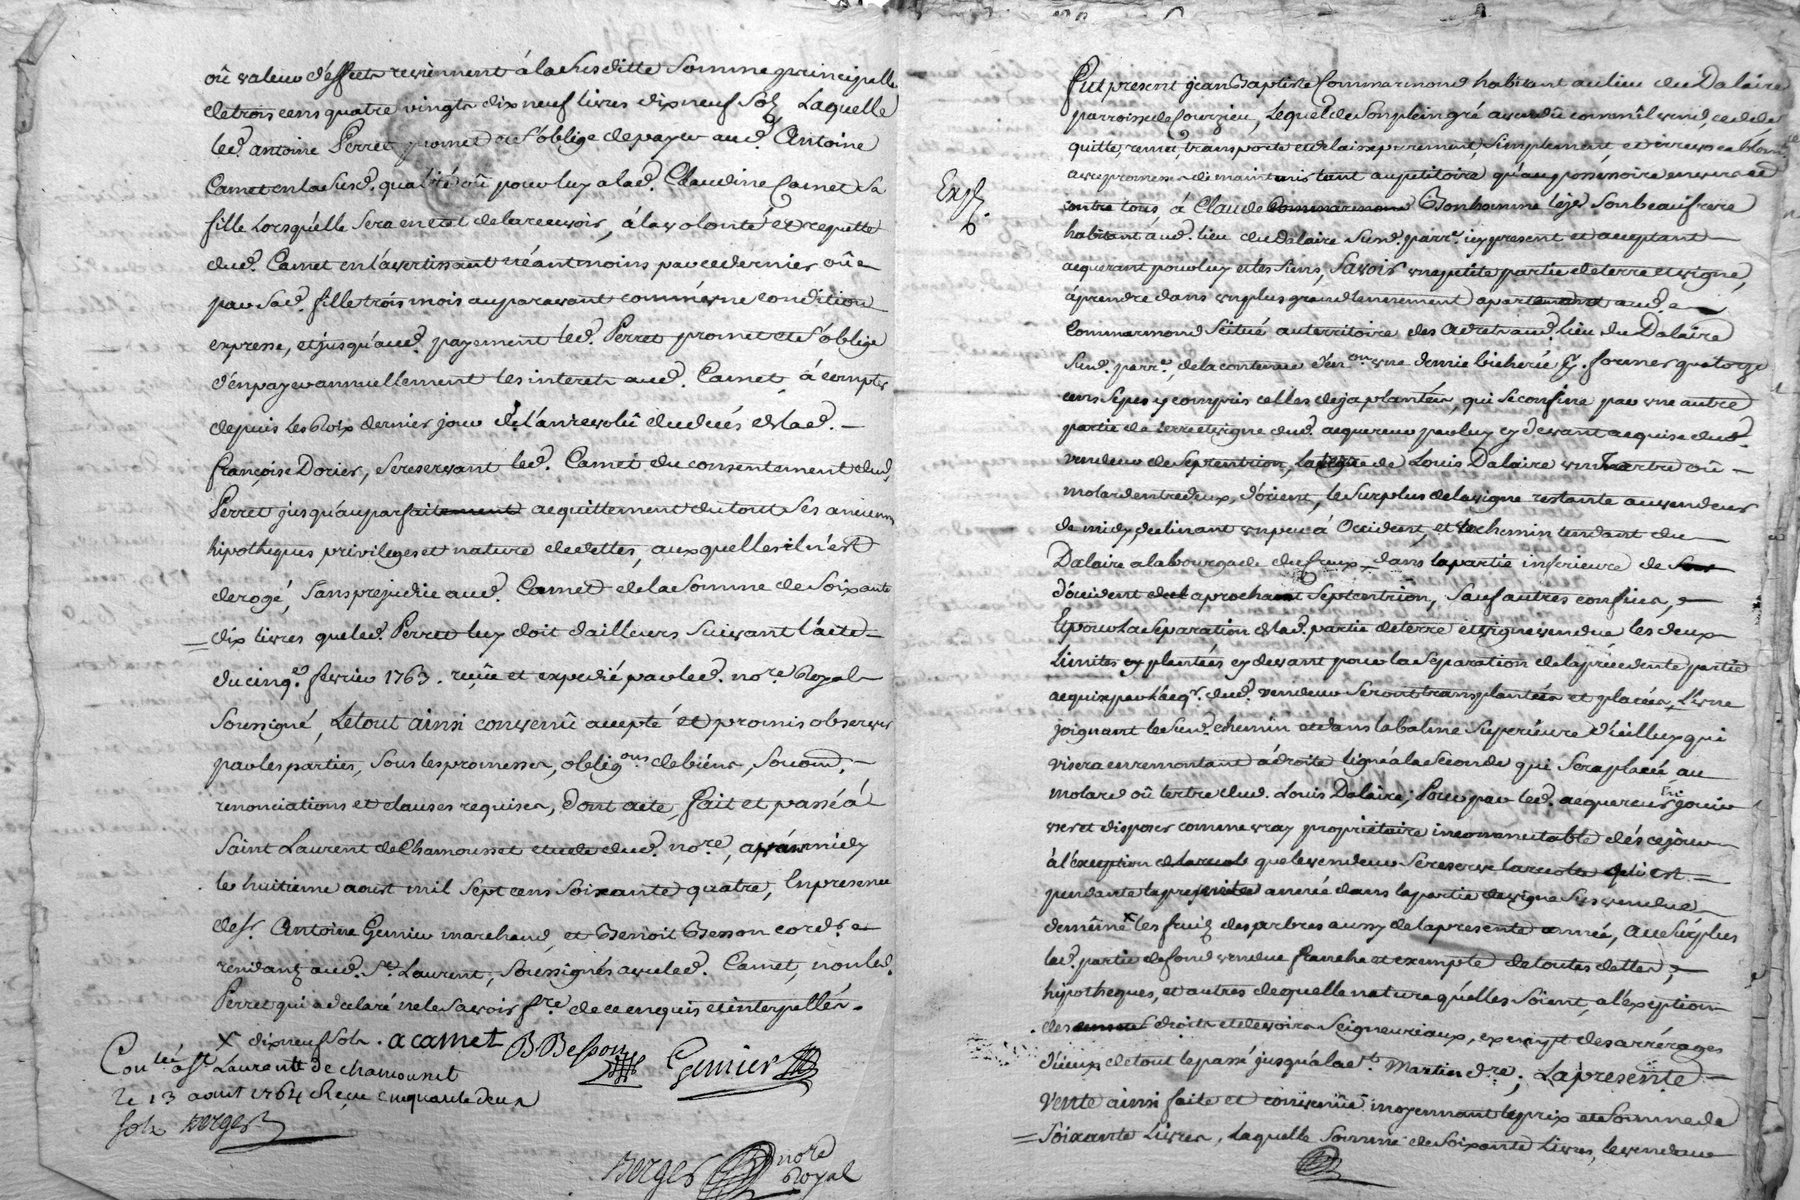 où valeur d'effets reviennent à la susditte somme principalle
de trois cens quatre vingts dix neuf livres dix neuf sols Laquelle
led. antoine Perret promet et s'oblige de payer aud. Antoine
Camet en la susd. qualité où pour luy a lad. Claudine Camet sa
fille lorsquélle sera en état de la recevoir, à la volonté et requette
dud. Camet en l'avertissant néantmoins par ce dernier où
par sad. fille trois mois auparavant comme une condition
expresse, et jusqu'aud. payement led. Perret promet et s'oblige
d'en payer annuellement les interets aud. Camet, à compter
depuis les dernier jour de l'an revolû du decés de lad.
françoise Dorier, se reservant led. Camet du consentement dud.
Perret jusqu'au parfait acquittement du tout ses anciens
hipotheques privileges et nature de dettes, auxquelles il n'est
derogé, sans prejudice aud. Camet de la somme de soixante
dix livres que led. Perret luy doit dailleurs suivant l'acte
du cinq. fevrier 1763. reçüe et expedié par led. nore. Royal
soussigné, Le tout ainsi convenû accepté et promis observer
par les parties, sous les promesses, obligons. de biens,
renonciations et clauses requises, dont acte, fait et passé à
Saint Laurent de Chamousset etude dud. nore, aprés midy
le huitieme aoust mil sept cens soixante quatre, En presence
de sr. Antoine Gemier marchand, et Benoit Besson cordr.
residants aud. St. Laurent, soussignés avec led. Camet, non led.
Perret qui a declaré ne le savoir fre. de ce enquis et interpellés.
x dix neuf sols. a camet B Besson Gemier
Contlé à St Laurent de chamousset
le 13 aout 1764 Reçu cinquante deux
sols Berger
Berger nore Royal
Fut present jean Baptiste Commarmond habitant au lieu du Dalaire
parroisse de Courzieu, Lequel de son plein gré a vendû comme il vend, cedde
quitte, remet, transporte et delaisse purement, simplement et irrevocablemt.
avec promesse de maintenir tant au petitoire qu'au possessoire envers et
Exp.
contre tous à Claude Commarmond Bonhomme son beaufrere
habitant aud. lieu du Dalaire susd. parr. icy present et acceptant
acquerant pour luy et les siens, Savoir une petite partie de terre et vigne,
à prendre dans un plus grand tenement apartenant aud.
Commarmond Scitué au territoire des Adrets aud. lieu du Dalaire
susd. parre. de la contenue d'environ une demie bicherée quatorze
cens seps y compris celles deja plantées, qui se confine par une autre
partie de terre et vigne dud. acquereur par luy cy devant acquise dud.
vendeur de septentrion, la vigne de Louis Dalaire un tertre où
molard entre deux, d'orient, le surplus de la vigne restante au vendeur
de midy declinant un peu à Occident, et le chemin tendant du
Dalaire a la bourgade dans la partie inferieure de
d'occident aprochant septentrion, sauf autres confins,
Et pour la separation de lad. partie de terre et vigne vendue les deux
Limites cy plantées cy devant pour la separation de la précedente partie
acquise par l'acqr. dud. vendeur seront transplantées et placées, L'une
joignant le susd. chemin et dans la balme superieure d'iceluy qui
visera en remontant à droite ligne à la seconde qui sera placée au
molard où tertre dud. Louis Dalaire; Pour par led. acquereur en jouir
user et disposer comme vray propriétaire incommutable dés ce jour
à l'exception que le vendeur se reserve la recolte
pendante la presente année dans la partie de vigne sus vendue
demême x les fruits des arbres aussy de la presente année, Au surplus
led. partie de fond vendue franche et exempte de toutes dettes,
hipotheques, et autres de quelle nature qu'elles soient, à l'exeption
des droits et devoirs seigneuriaux, exempt des arrérages
d'iceux de tout le passé jusqu'à la st. Martin dre; La presente
vente ainsi faite et convenûe moyennant le prix et somme de
Soixante Livres, Laquelle somme de soixante Livres, le vendeur